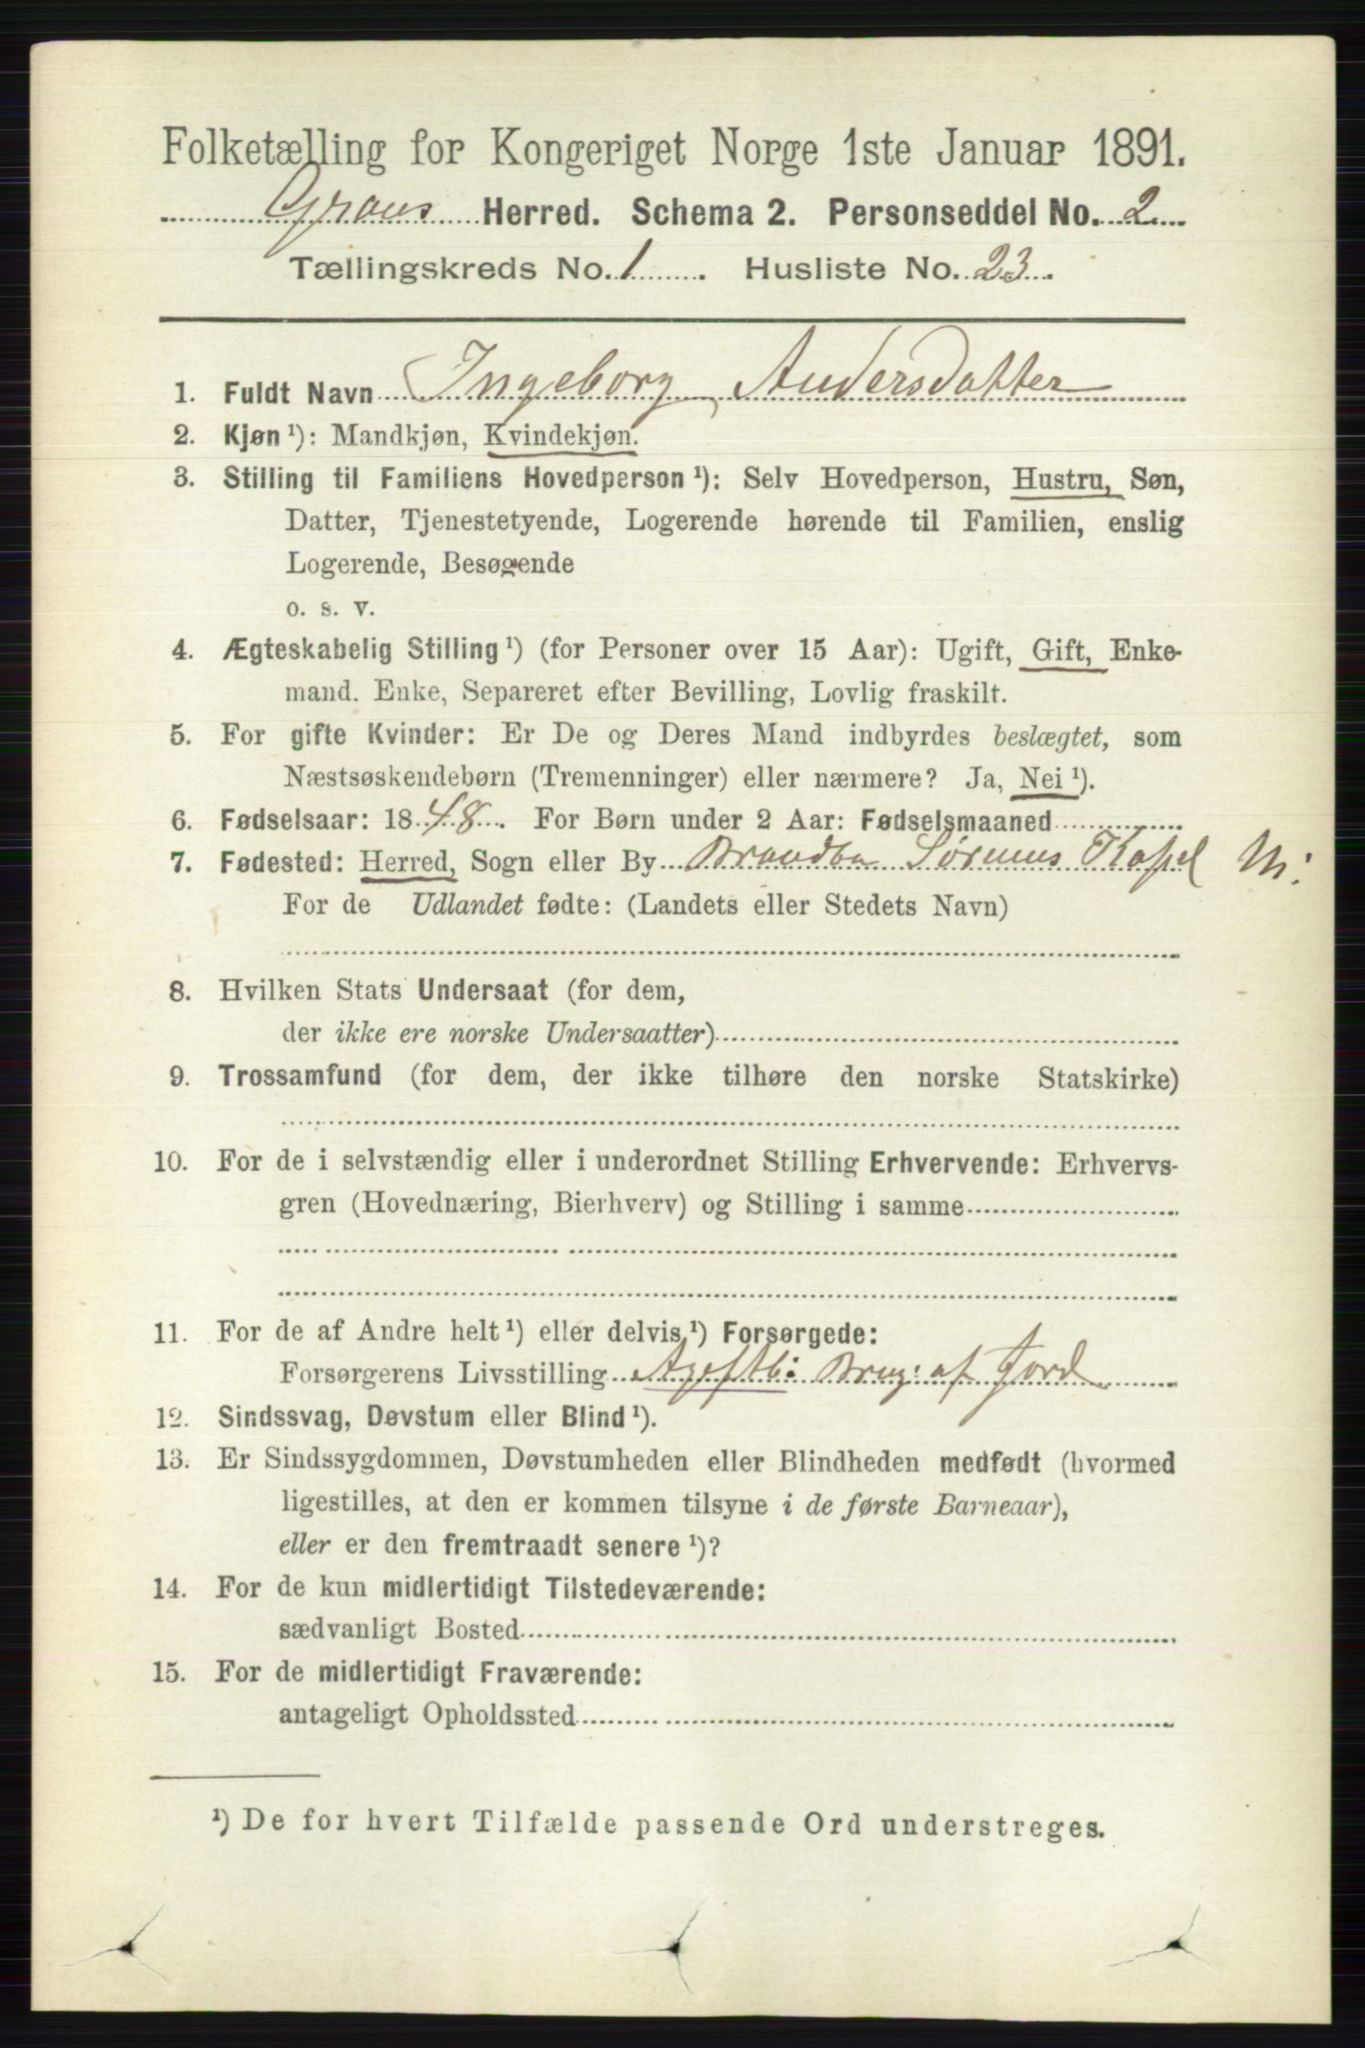 Folketælling for Kongeriget Norge 1ste Januar 1891.
Grans Herred. Schema 2. Personseddel No. 2
Tællingskreds No. 1. Husliste No. 23.
1. Fuldt Navn Ingeborg Andersdatter
2. Kjøn ¹): Mandkjøn, Kvindekjøn.
3. Stilling til Familiens Hovedperson ¹): Selv Hovedperson, Hustru, Søn,
Datter, Tjenestetyende, Logerende hørende til Familien, enslig
Logerende, Besøgende
o. s. v.
4. Ægteskabelig Stilling ¹) (for Personer over 15 Aar): Ugift, Gift, Enke-
mand. Enke, Separeret efter Bevilling, Lovlig fraskilt.
5. For gifte Kvinder: Er De og Deres Mand indbyrdes beslægtet, som
Næstsøskendebørn (Tremenninger) eller nærmere? Ja, Nei ¹).
6. Fødselsaar: 1848. For Børn under 2 Aar: Fødselsmaaned
7. Fødested: Herred, Sogn eller By Brandbu Sørums Kapel
For de Udlandet fødte: (Landets eller Stedets Navn)
8. Hvilken Stats Undersaat (for dem,
der ikke ere norske Undersaatter)
9. Trossamfund (for dem, der ikke tilhøre den norske Statskirke)
10. For de i selvstændig eller i underordnet Stilling Erhvervende: Erhvervs-
gren (Hovednæring, Bierhverv) og Stilling i samme
11. For de af Andre helt ¹) eller delvis ¹) Forsørgede:
Forsørgerens Livsstilling Brug: af Jord
12. Sindssvag, Døvstum eller Blind ¹).
13. Er Sindssygdommen, Døvstumheden eller Blindheden medfødt (hvormed
ligestilles, at den er kommen tilsyne i de første Barneaar),
eller er den fremtraadt senere ¹)?
14. For de kun midlertidigt Tilstedeværende:
sædvanligt Bosted
15. For de midlertidigt Fraværende:
antageligt Opholdssted
¹) De for hvert Tilfælde passende Ord understreges.